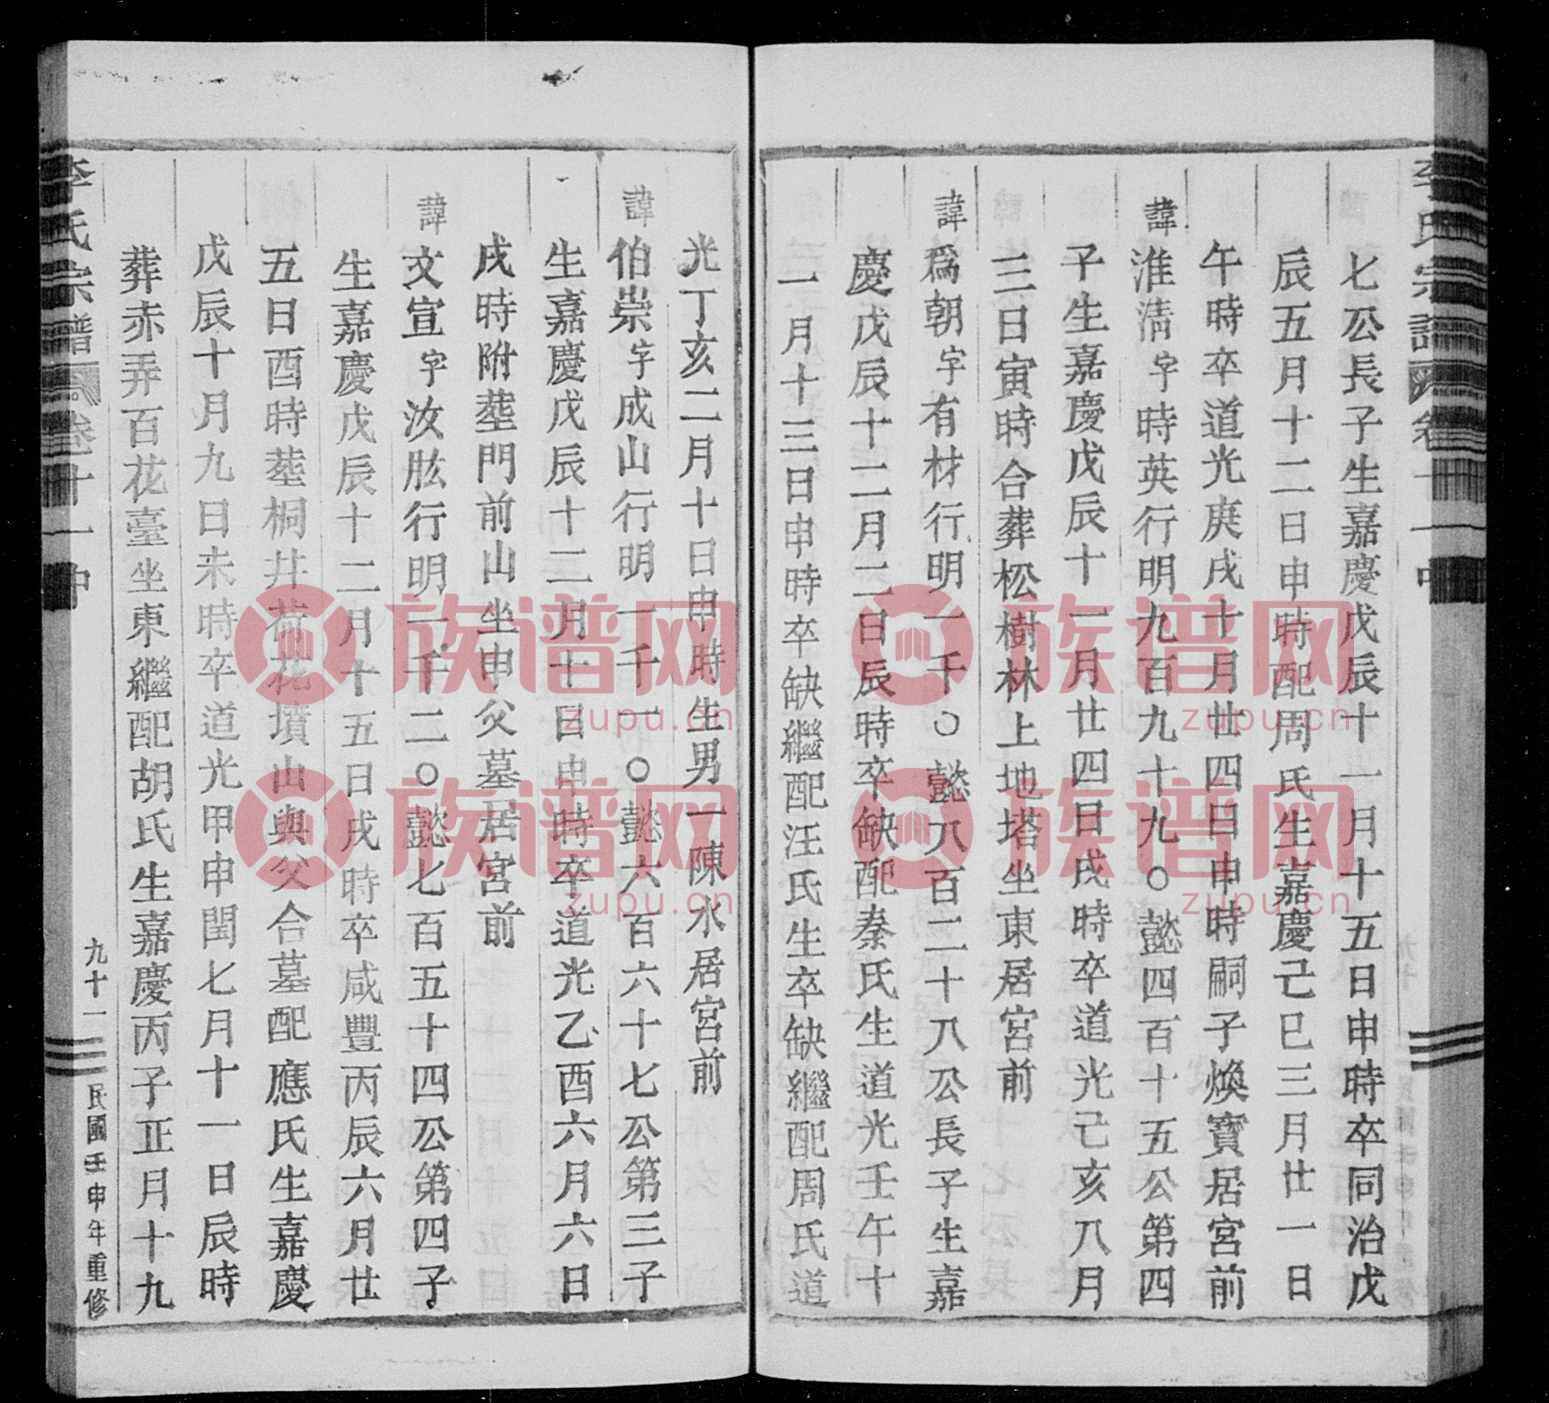 七公長子生嘉慶戊辰十一月十五日申時卒同治戊
辰五月十二日申時配周氏生嘉慶己巳三月廿一日
午時卒道光庚戌十月廿四日申時嗣子煥寶居宮前
諱淮清字時英行明九百九十九〇懿四百十五公第四
子生嘉慶戊辰十二月廿四日戌時卒道光己亥八月
三日寅時合葬松樹林上地塔坐東居宮前
諱爲朝字有材行明一千〇懿八百二十八公長子生嘉
慶戊辰十二月二日辰時卒缺配秦氏生道光壬午十
一月十三日申時卒缺繼配汪氏生卒缺繼配周氏道
光丁亥二月十日申時生男一陳水居宮前
諱伯崇字成山行明一千一〇懿六百六十七公第三子
生嘉慶戊辰十二月十日申時卒道光乙酉六月六日
戌時附塟門前山坐申父墓居宮前
諱文宣字汝肱行明一千二〇懿七百五十四公第四子
生嘉慶戊辰十二月十五日戌時卒咸豐丙辰六月廿
五日酉時塟桐井荷花墳山與父合墓配應氏生嘉慶
戊辰十月九日未時卒道光甲申閏七月十一日辰時
葬赤弄百花臺坐東繼配胡氏生嘉慶丙子正月十九
李氏宗譜 卷十一中
九十一
民國壬申年重修
族谱网
zupu.cn
族谱网
zupu.cn
族谱网
zupu.cn
族谱网
zupu.cn